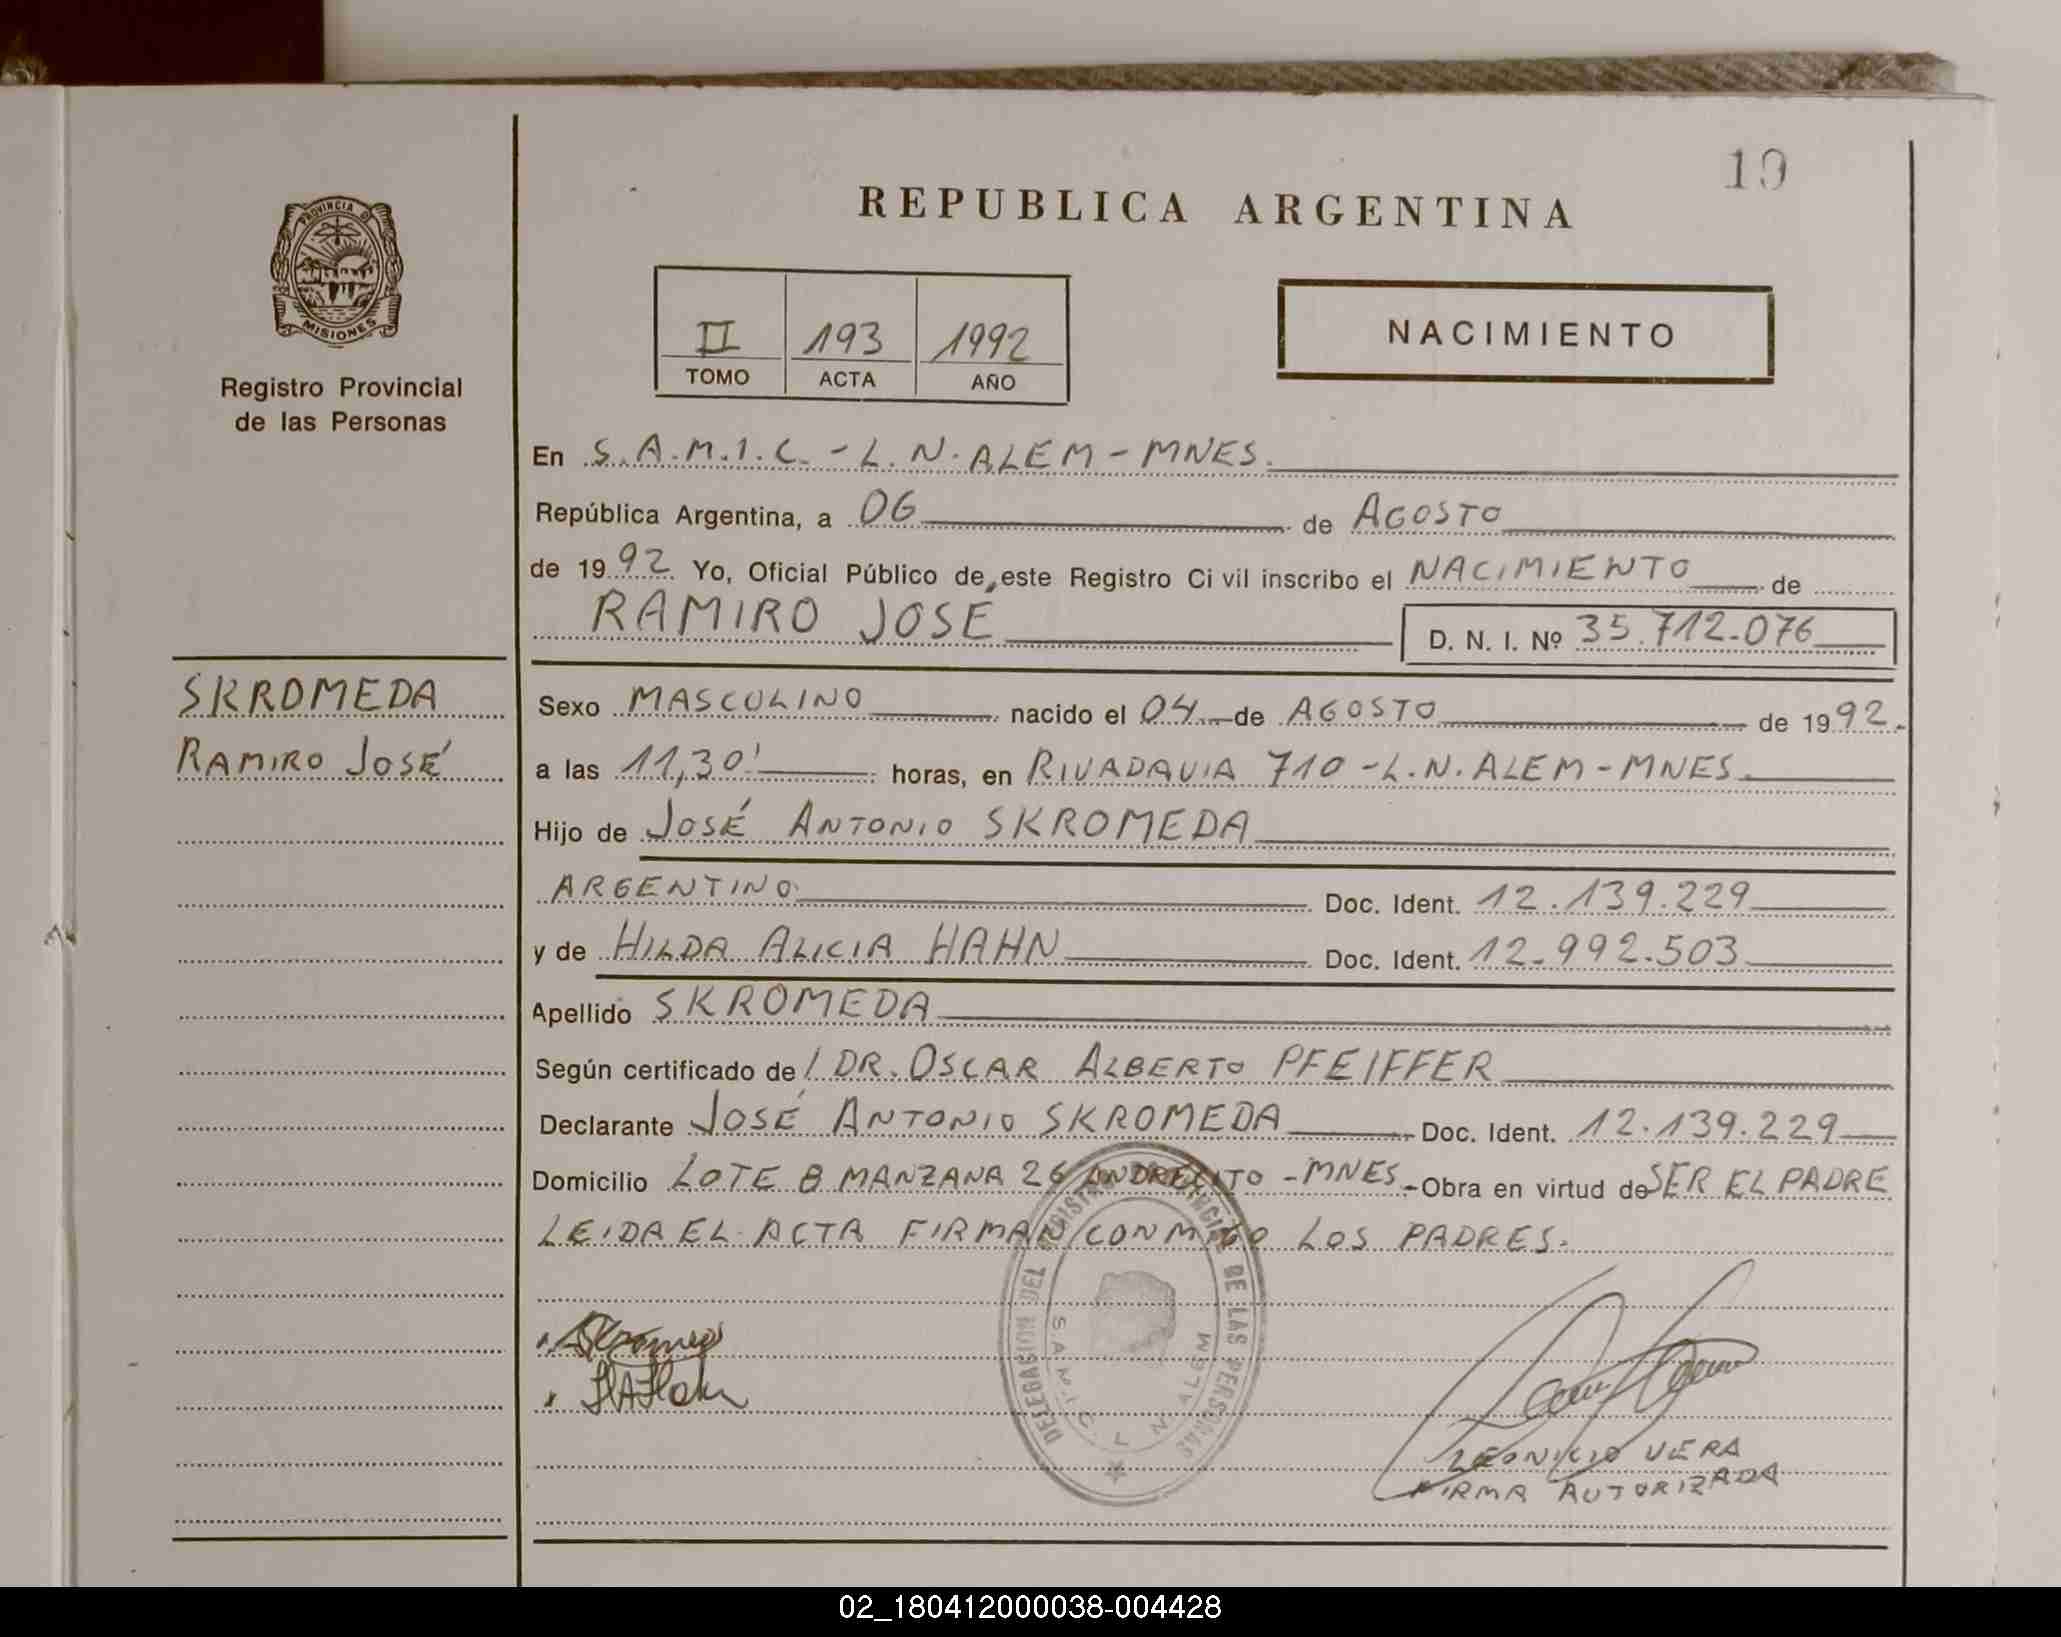 19
REPUBLICA ARGENTINA
PROVINCIA D
MISIONES
Registro Provincial
de las Personas
II 193 1992
TOMO ACTA AÑO
NACIMIENTO
En S.A.M.I.C. - L.N. ALEM - MNES.
República Argentina, a 06 de AGOSTO
de 1992 Yo, Oficial Público de este Registro Civil inscribo el NACIMIENTO de
RAMIRO JOSÉ D. N. I. Nº 35.712.076
SKROMEDA
RAMIRO JOSÉ
Sexo MASCULINO nacido el 04 de AGOSTO de 1992.
a las 11,30' horas, en RIVADAVIA 710 - L.N. ALEM - MNES.
Hijo de JOSÉ ANTONIO SKROMEDA
ARGENTINO Doc. Ident. 12.139.229
y de HILDA ALICIA HAHN Doc. Ident. 12.992.503
Apellido SKROMEDA
Según certificado de/ DR. OSCAR ALBERTO PFEIFFER
Declarante JOSÉ ANTONIO SKROMEDA Doc. Ident. 12.139.229
Domicilio LOTE 8 MANZANA 26 ANDRECITO - MNES. - Obra en virtud de SER EL PADRE
LEIDA EL ACTA FIRMAN CONMIGO LOS PADRES.
DELEGACION DEL REGISTRO PROVINCIAL DE LAS PERSONAS
S.A.M.I.C. L. N. ALEM
LEONICIO VERA
FIRMA AUTORIZADA
02_180412000038-004428